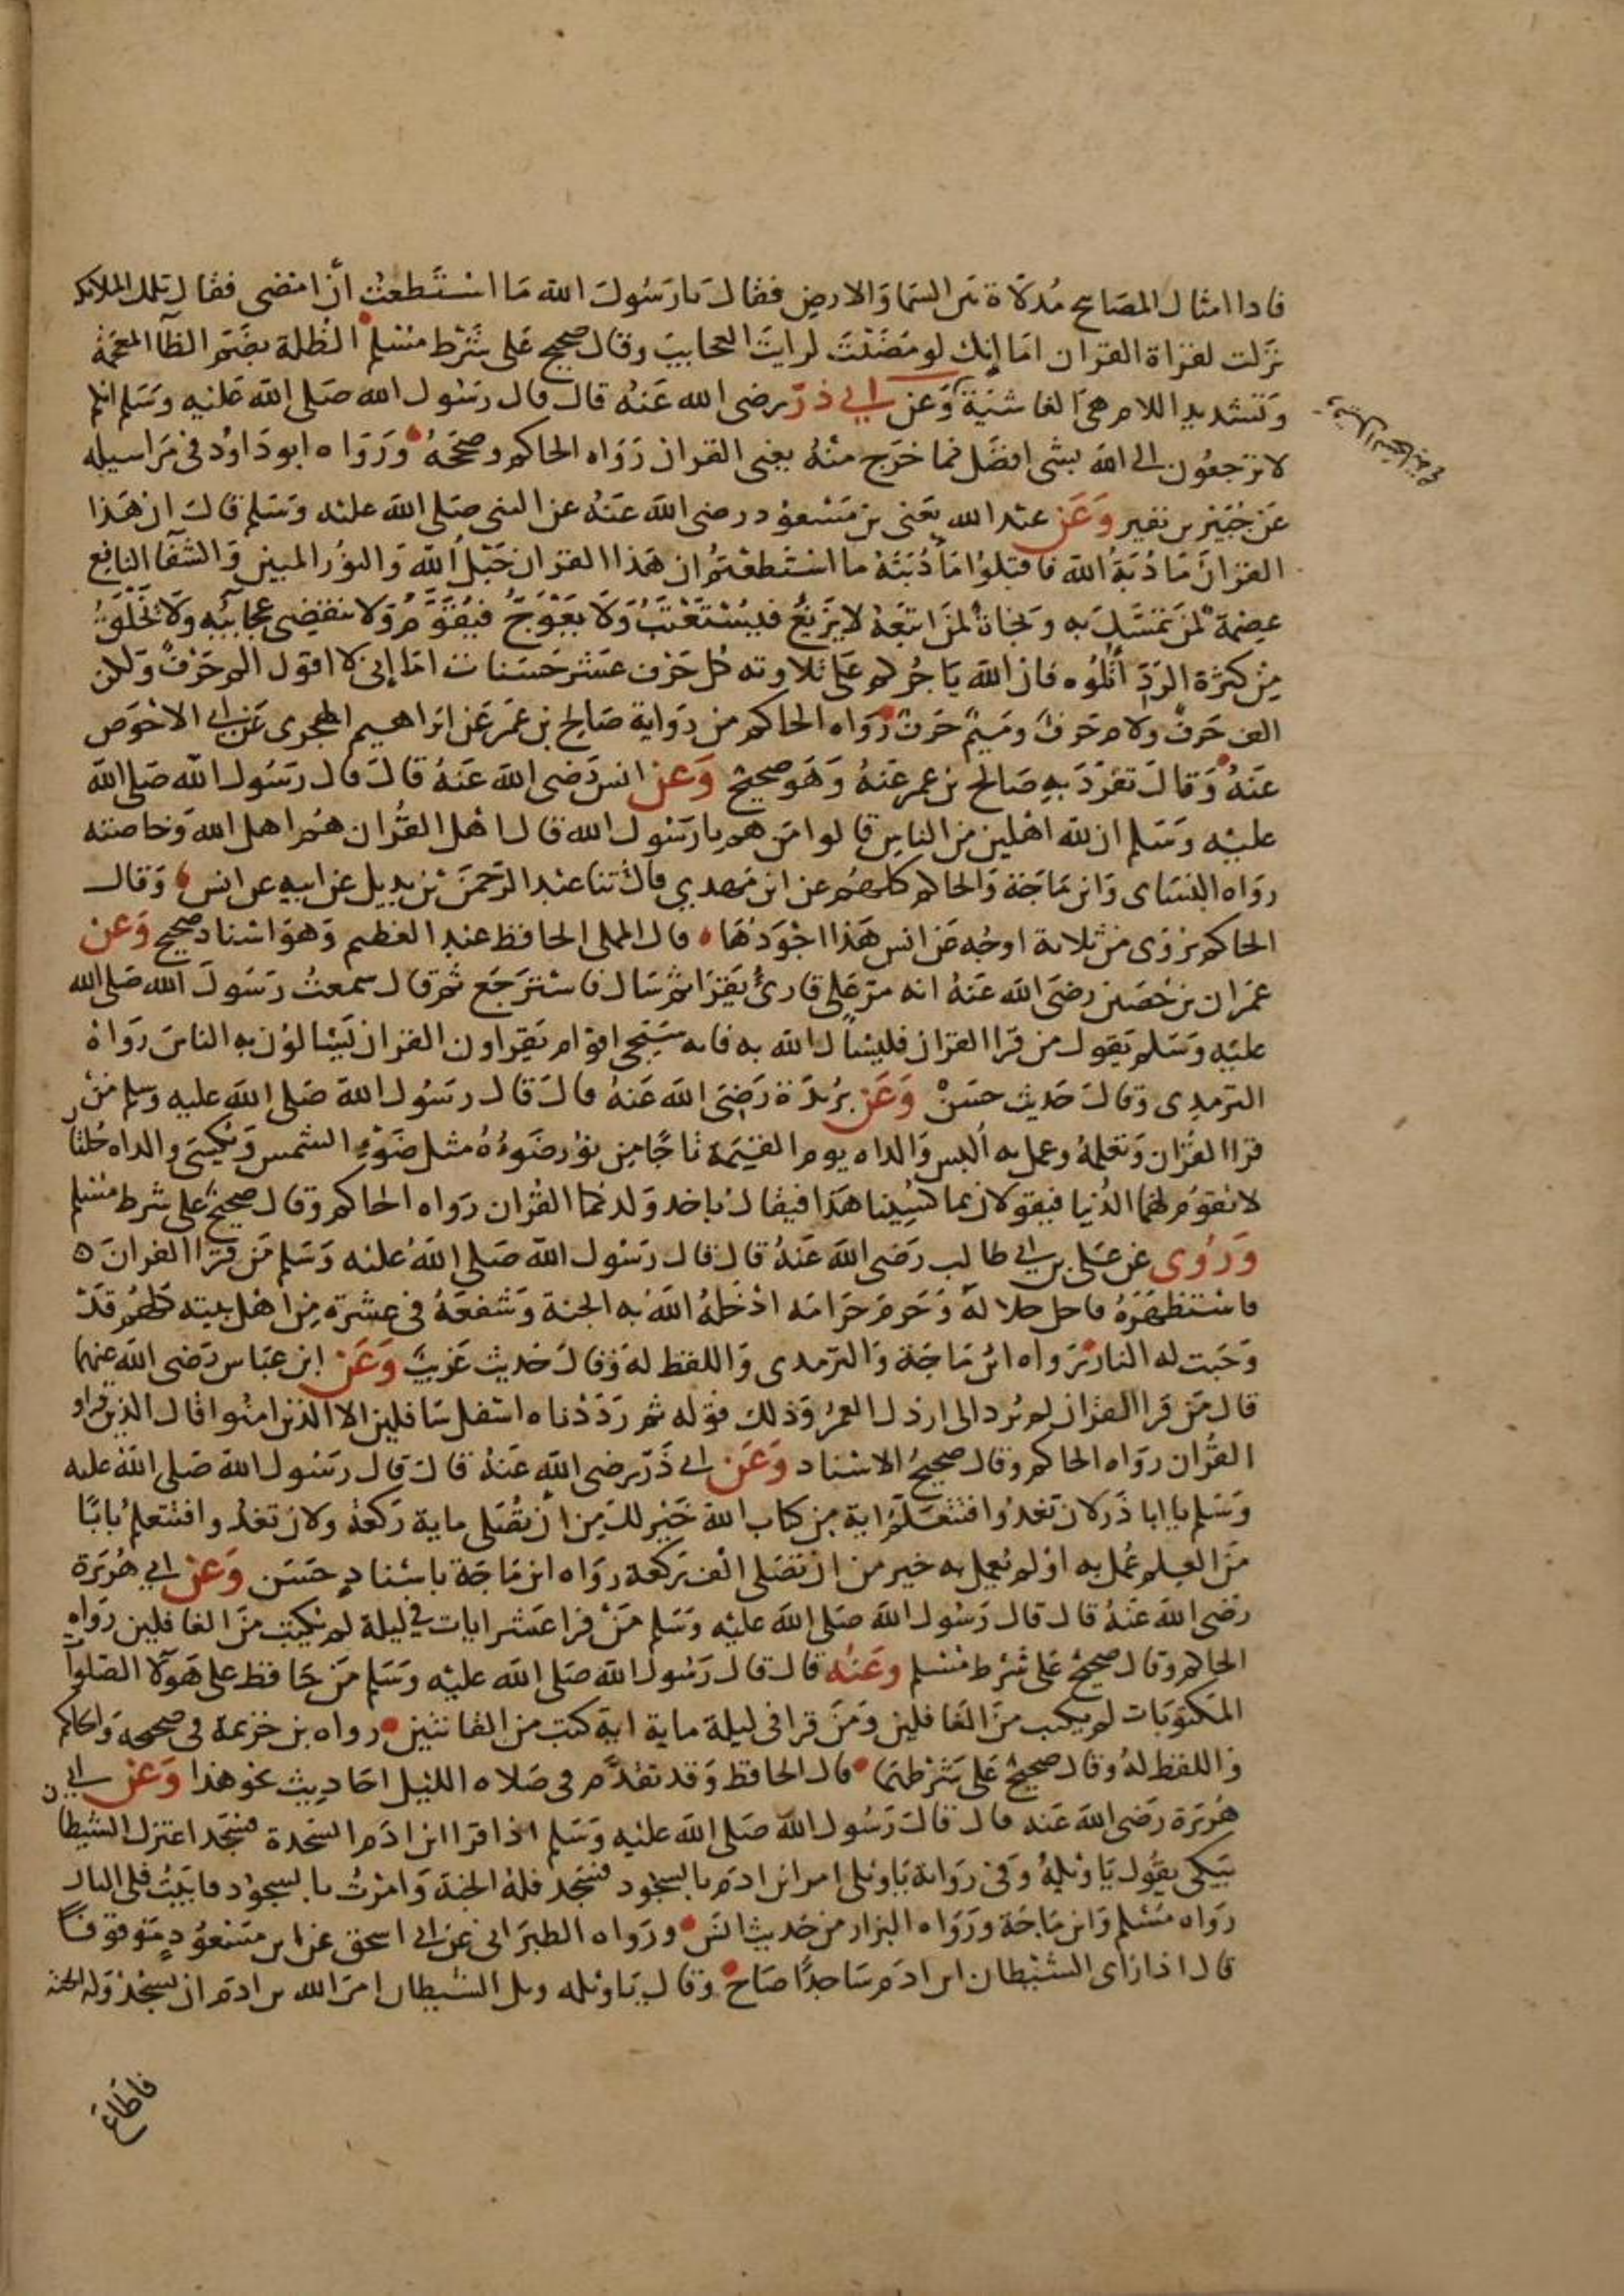 فاذا امثال المصابيح مدلاة بين السما والارض فقال يا رسول الله ما استطعت أن امضى فقال تلك الملايكة
نزلت لقراة القران اما إنك لو مضيت لرايت العجايب وقال صحيح على شرط مسلم الظلة بضم الظآ المعجمة
وتشديد اللام هى الغاشية وعن ابي ذر رضى الله عنه قال قال رسول الله صلى الله عليه وسلم انكم
لا ترجعون الى الله بشى افضل مما خرج منه يعنى القران رواه الحاكم وصححه ورواه ابو داود فى مراسيله
عن جبير بن نفير وعن عبد الله يعنى بن مسعود رضى الله عنه عن النبى صلى الله عليه وسلم قال ان هذا
القران مأدبة الله فاقبلوا مأدبته ما استطعتم ان هذا القران حبل الله والنور المبين والشفآ النافع
عصمة لمن تمسك به ونجاة لمن اتبعه لا يزيغ فيستعتب ولا يعوج فيقوم ولا تنقضى عجائبه ولا يخلق
من كثرة الرد أتلوه فان الله ياجركم على تلاوته كل حرف عشر حسنات اما إنى لا اقول الم حرف ولكن
الف حرف ولام حرف وميم حرف رواه الحاكم من رواية صالح بن عمر عن ابراهيم الهجرى عن ابي الاحوص
عنه وقال تفرد به صالح بن عمر عنه وهو صحيح وعن انس رضى الله عنه قال قال رسول الله صلى الله
عليه وسلم ان لله اهلين من الناس قالوا من هم يا رسول الله قال اهل القران هم اهل الله وخاصته
رواه النساى وابن ماجة والحاكم كلهم عن ابن مهدي قال ثنا عبد الرحمن بن بديل عن ابيه عن انس وقال
الحاكم يروى من ثلاثة اوجه عن انس هذا اجودها قال المملى الحافظ عبد العظيم وهو اسناد صحيح وعن
عمران بن حصين رضى الله عنه انه مر على قارئ يقرا ثم سال فاسترجع ثم قال سمعت رسول الله صلى الله
عليه وسلم يقول من قرا القران فليسأل الله به فانه سيجى اقوام يقراون القران يسالون به الناس رواه
الترمدى وقال حديث حسن وعن بريدة رضى الله عنه قال قال رسول الله صلى الله عليه وسلم من
قرا القران وتعلمه وعمل به ألبس والداه يوم القيمة تاجا من نور ضوءه مثل ضوء الشمس ويكسى والداه حلتان
لا تقوم لهما الدنيا فيقولان بما كسينا هذا فيقال باخد ولدكما القران رواه الحاكم وقال صحيح على شرط مسلم
وروى عن على بن ابي طالب رضى الله عنه قال قال رسول الله صلى الله عليه وسلم من قرا القران
فاستظهره فاحل حلاله وحرم حرامه ادخله الله به الجنة وشفعه فى عشرة من اهل بيته كلهم قد
وجبت له النار رواه ابن ماجة والترمدى واللفظ له وقال حديث غريب وعن ابن عباس رضى الله عنهما
قال من قرا القران لم يرد الى ارذل العمر وذلك قوله ثم رددناه اسفل سافلين الا الذين امنوا قال الذين قراو
القران رواه الحاكم وقال صحيح الاسناد وعن ابي ذر رضى الله عنه قال قال رسول الله صلى الله عليه
وسلم يا ابا ذر لان تغدوا فتتعلم اية من كتاب الله خير لك من ان تصلى ماية ركعة ولان تغدوا فتتعلم بابا
من العلم عمل به او لم يعمل به خير من ان تصلى الف ركعة رواه ابن ماجة باسناد حسن وعن ابي هريرة
رضى الله عنه قال قال رسول الله صلى الله عليه وسلم من قرا عشر ايات في ليلة لم يكتب من الغافلين رواه
الحاكم وقال صحيح على شرط مسلم وعنه قال قال رسول الله صلى الله عليه وسلم من حافظ على هولآ الصلوات
المكتوبات لم يكتب من الغافلين ومن قرا فى ليلة ماية اية كتب من القانتين رواه بن خزيمة فى صحيحه والحاكم
واللفظ له وقال صحيح على شرطهما قال الحافظ وقد تقدم فى صلاه الليل احاديث نحو هذا وعن ابي
هريرة رضى الله عنه قال قال رسول الله صلى الله عليه وسلم اذا قرا ابن ادم السجدة فسجد اعتزل الشيطان
يبكى يقول يا ويله وفى رواية يا ويلى امر ابن ادم بالسجود فسجد فله الجنة وامرت بالسجود فابيت فلى النار
رواه مسلم وابن ماجة ورواه البزار من حديث انس ورواه الطبرانى عن ابي اسحق عن ابن مسعود موقوفا
قال اذا راى الشيطان ابن ادم ساجدا صاح وقال يا ويله ويل الشيطان امر الله بن ادم ان يسجد وله الجنة
فاطاع